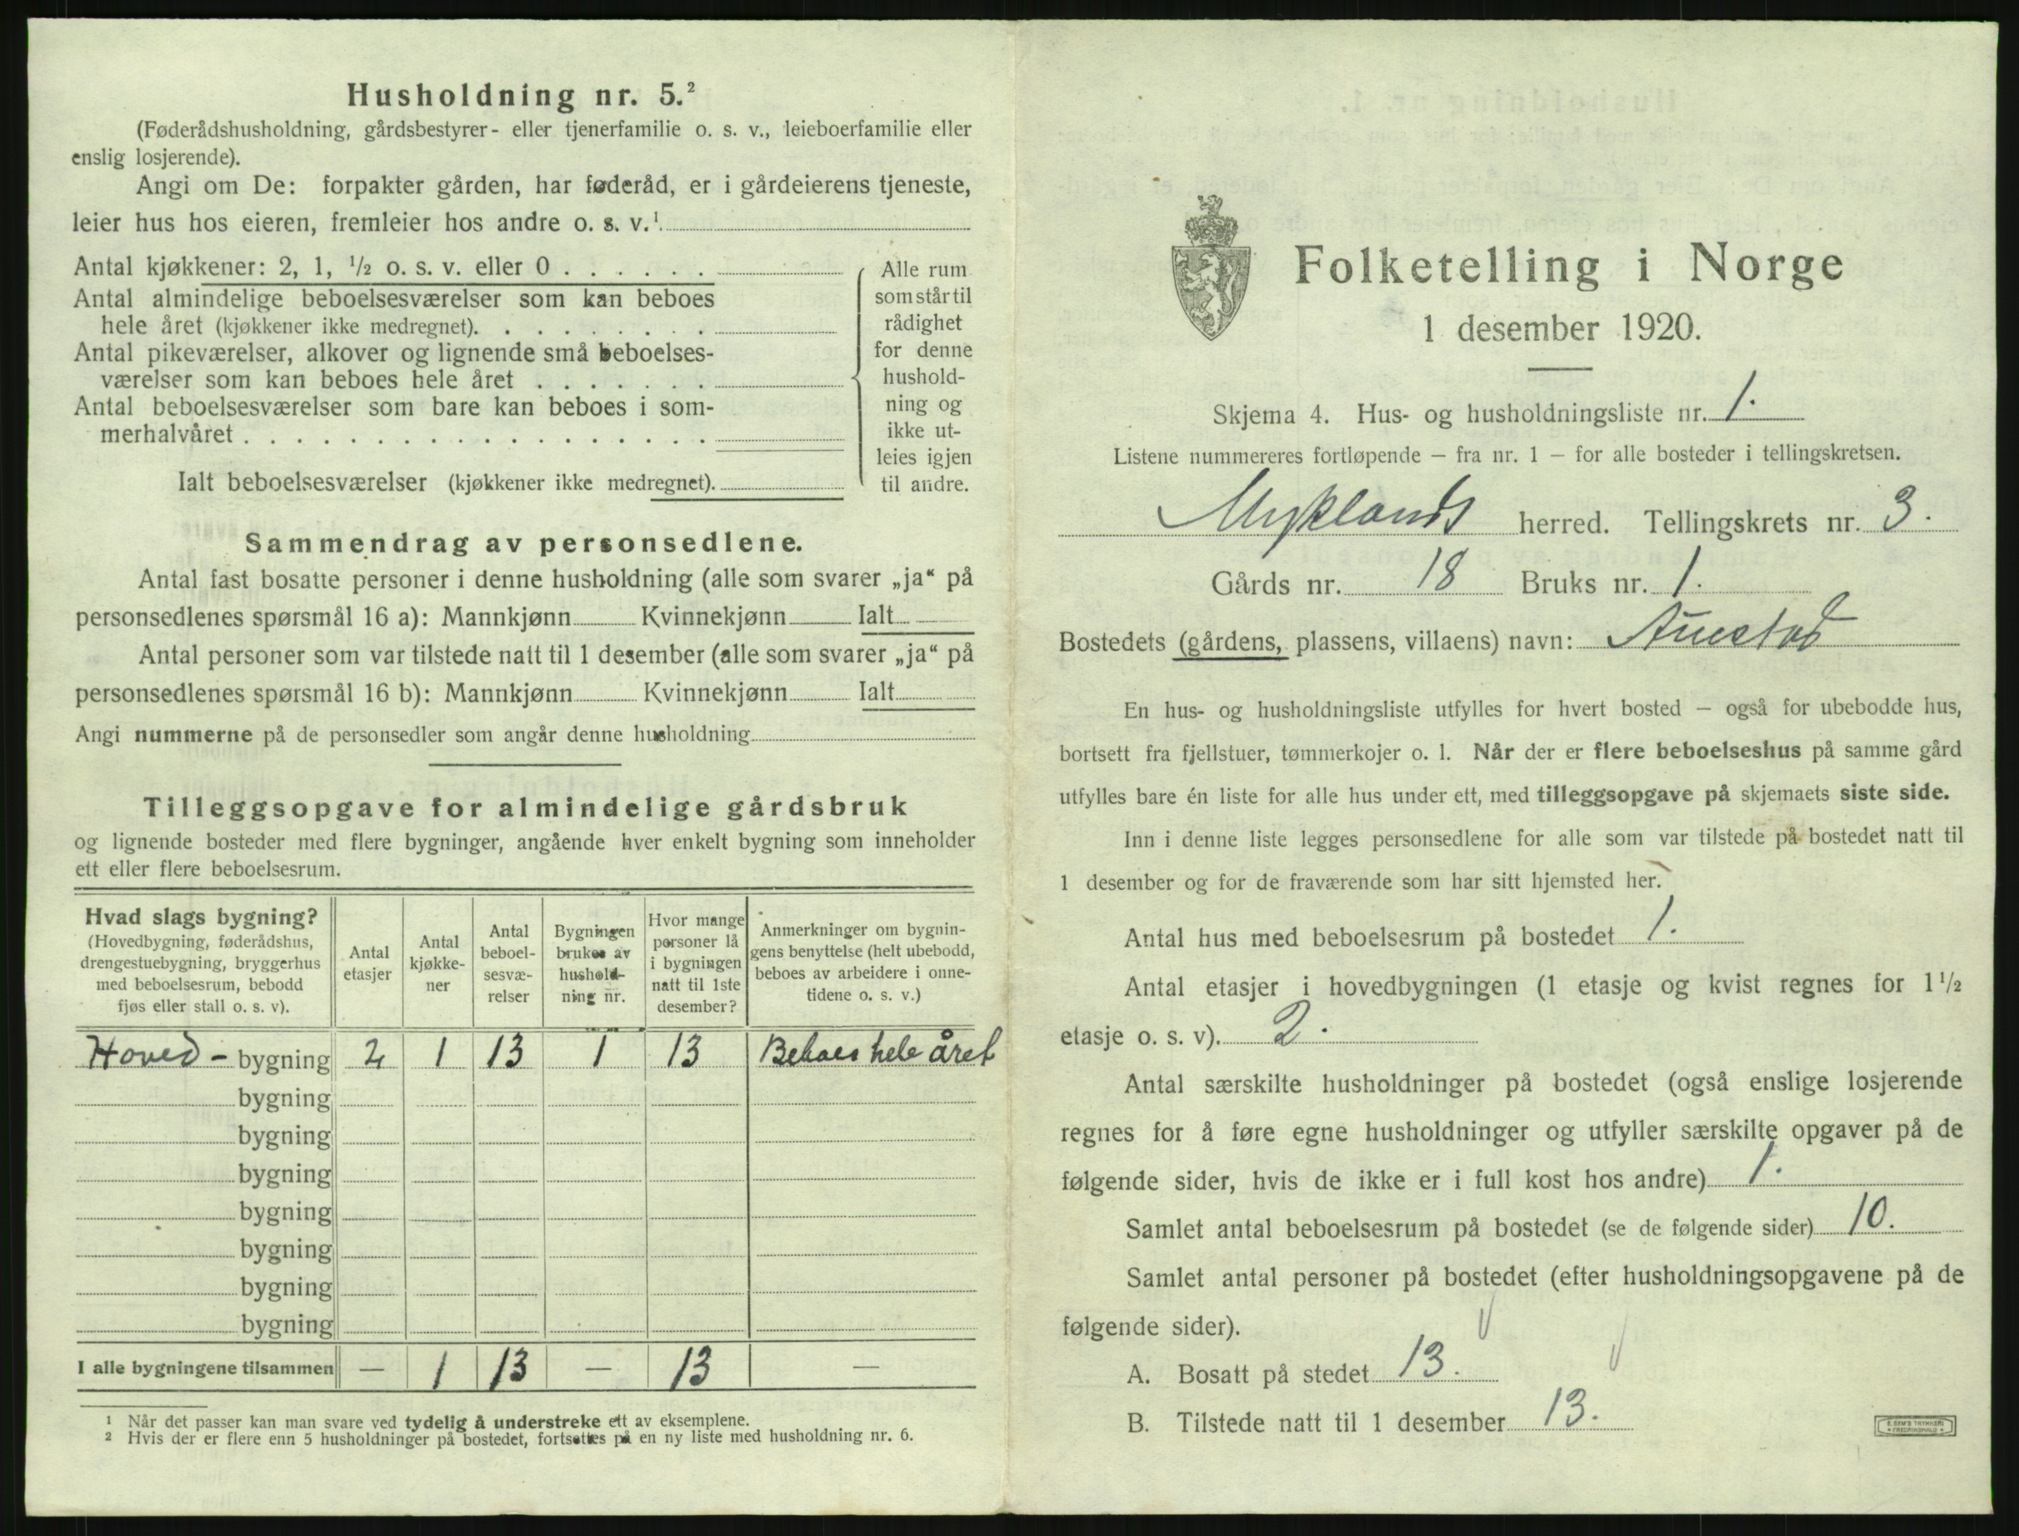 Husholdning nr. 5.²
(Føderådshusholdning, gårdsbestyrer- eller tjenerfamilie o. s. v., leieboerfamilie eller
enslig losjerende).
Angi om De: forpakter gården, har føderåd, er i gårdeierens tjeneste,
leier hus hos eieren, fremleier hos andre o. s. v.¹
Antal kjøkkener: 2, 1, ½ o. s. v. eller 0 . . . . . .
Antal almindelige beboelsesværelser som kan beboes
hele året (kjøkkener ikke medregnet). . . . . . . . .
Antal pikeværelser, alkover og lignende små beboelses-
værelser som kan beboes hele året . . . . . . .
Antal beboelsesværelser som bare kan beboes i som-
merhalvåret . . . . . . . . . . . . . . . . . .
Ialt beboelsesværelser (kjøkkener ikke medregnet).
Alle rum
som står til
rådighet
for denne
hushold-
ning og
ikke ut-
leies igjen
til andre.
Sammendrag av personsedlene.
Antal fast bosatte personer i denne husholdning (alle som svarer „ja“ på
personsedlenes spørsmål 16 a): Mannkjønn Kvinnekjønn Ialt
Antal personer som var tilstede natt til 1 desember (alle som svarer „ja“ på
personsedlenes spørsmål 16 b): Mannkjønn Kvinnekjønn Ialt
Angi nummerne på de personsedler som angår denne husholdning
Tilleggsopgave for almindelige gårdsbruk
og lignende bosteder med flere bygninger, angående hver enkelt bygning som inneholder
ett eller flere beboelsesrum.
Hvad slags bygning?
(Hovedbygning, føderådshus,
drengestuebygning, bryggerhus
med beboelsesrum, bebodd
fjøs eller stall o. s. v).
Antal
etasjer
Antal
kjøkke-
ner
Antal
beboel-
sesvæ-
relser
Bygningen
brukes av
hushold-
ning nr.
Hvor mange
personer lå
i bygningen
natt til 1ste
desember?
Anmerkninger om bygnin-
gens benyttelse (helt ubebodd,
beboes av arbeidere i onne-
tidene o. s. v.)
Hoved - bygning 2 1 13 1 13 Beboes hele året
bygning
bygning
bygning
bygning
bygning
bygning
bygning
I alle bygningene tilsammen — 1 13 — 13 —
¹ Når det passer kan man svare ved tydelig å understreke ett av eksemplene.
² Hvis der er flere enn 5 husholdninger på bostedet, fortsettes på en ny liste med husholdning nr. 6.
Folketelling i Norge
1 desember 1920.
Skjema 4. Hus- og husholdningsliste nr. 1.
Listene nummereres fortløpende — fra nr. 1 — for alle bosteder i tellingskretsen.
Myklands herred. Tellingskrets nr. 3.
Gårds nr. 18 Bruks nr. 1.
Bostedets (gårdens, plassens, villaens) navn: Aunstad
En hus- og husholdningsliste utfylles for hvert bosted — også for ubebodde hus,
bortsett fra fjellstuer, tømmerkojer o. l. Når der er flere beboelseshus på samme gård
utfylles bare én liste for alle hus under ett, med tilleggsopgave på skjemaets siste side.
Inn i denne liste legges personsedlene for alle som var tilstede på bostedet natt til
1 desember og for de fraværende som har sitt hjemsted her.
Antal hus med beboelsesrum på bostedet 1.
Antal etasjer i hovedbygningen (1 etasje og kvist regnes for 1½
etasje o. s. v). 2.
Antal særskilte husholdninger på bostedet (også enslige losjerende
regnes for å føre egne husholdninger og utfyller særskilte opgaver på de
følgende sider, hvis de ikke er i full kost hos andre) 1.
Samlet antal beboelsesrum på bostedet (se de følgende sider) 10.
Samlet antal personer på bostedet (efter husholdningsopgavene på de
følgende sider).
A. Bosatt på stedet 13.
B. Tilstede natt til 1 desember 13.